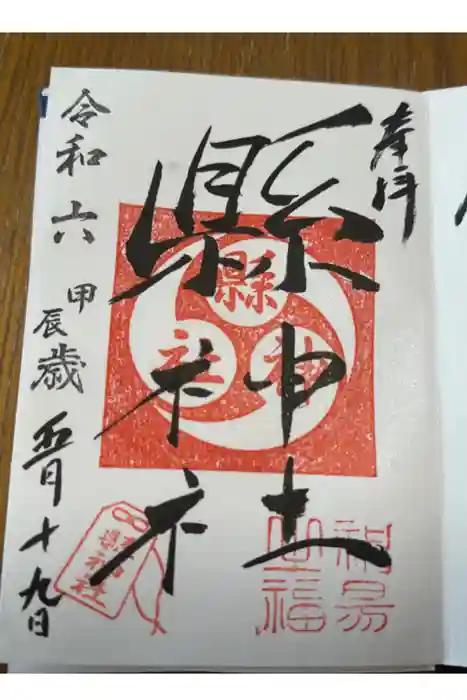 奉拝
縣神社
縣神社
令和六甲辰歳四月十九日
縣神社